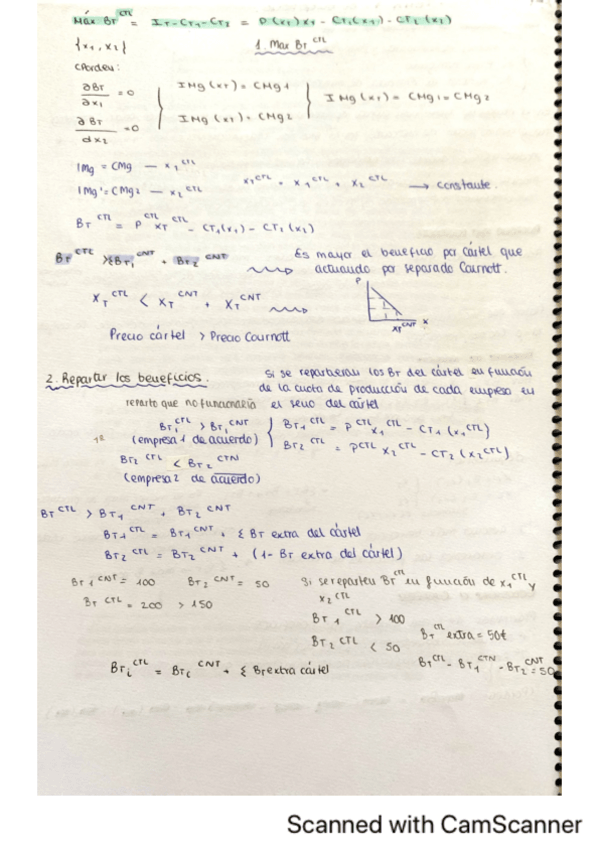 Máx BT^CTL = IT - CT1 - CT2 = P(xT) xT - CT1(x1) - CT2(x2)
{x1, x2}
1. Max BT^CTL
CPOrden:
∂BT/∂x1 = 0
IMg(xT) = CMg1
∂BT/dx2 = 0
IMg(xT) = CMg2
IMg(xT) = CMg1 = CMg2
IMg = CMg — x1^CTL
IMg = CMg2 — x2^CTL
xT^CTL = x1^CTL + x2^CTL → constante.
BT^CTL = P^CTL xT^CTL - CT1(x1) - CT2(x2)
BT^CTL > BT1^CNT + BT2^CNT
Es mayor el beneficio por cártel que
actuando por separado Cournott.
XT^CTL < XT^CNT + XT^CNT
P
XT^CNT X
Precio cártel > Precio Cournott
2. Repartir los beneficios.
Si se repartieran los BT del cártel en función
de la cuota de producción de cada empresa en
reparto que no funcionaría el seno del cártel
BT1^CTL > BT1^CNT
(empresa 1 de acuerdo)
BT1^CTL = P^CTL x1^CTL - CT1(x1^CTL)
BT2^CTL < BT2^CTN
BT2^CTL = P^CTL x2^CTL - CT2(x2^CTL)
(empresa 2 de acuerdo)
BT^CTL > BT1^CNT + BT2^CNT
BT1^CTL = BT1^CNT + ξ BT extra del cártel
BT2^CTL = BT2^CNT + (1- BT extra del cártel)
BT1^CNT = 100 BT2^CNT = 50
Si se reparten BT^CTL en función de x1^CTL y
x2^CTL
BT^CTL = 200 > 150
BT1^CTL > 100
BT2^CTL < 50
BT^CTL extra = 50€
BTi^CTL = BTi^CNT + ξ BT extra cártel
BT^CTL - BT1^CTN - BT2^CNT = 50
Scanned with CamScanner